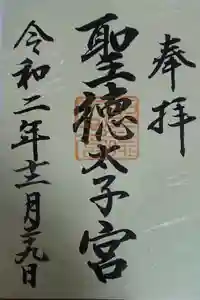 奉拝
聖徳太子宮
令和二年十二月二十九日